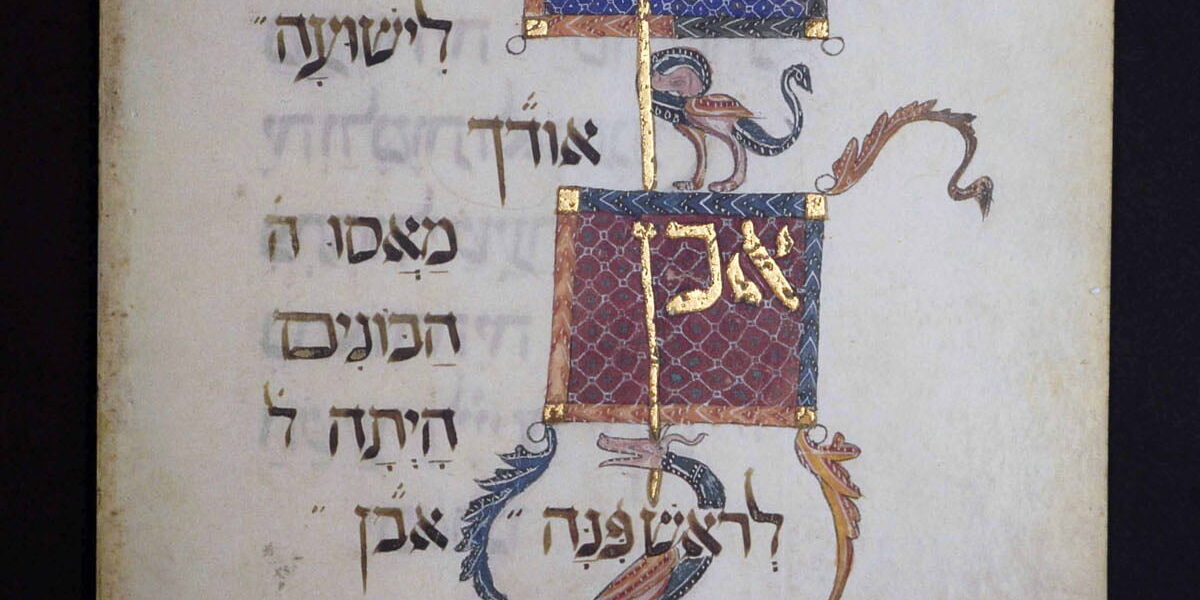 לִישׁוּעָה ״
אודך ״
אבן
מָאֲסוּ ה
הַבּוֹנִים
הָיְתָה ל
לְרֹאשׁ פִּנָּה ״ אבן ״